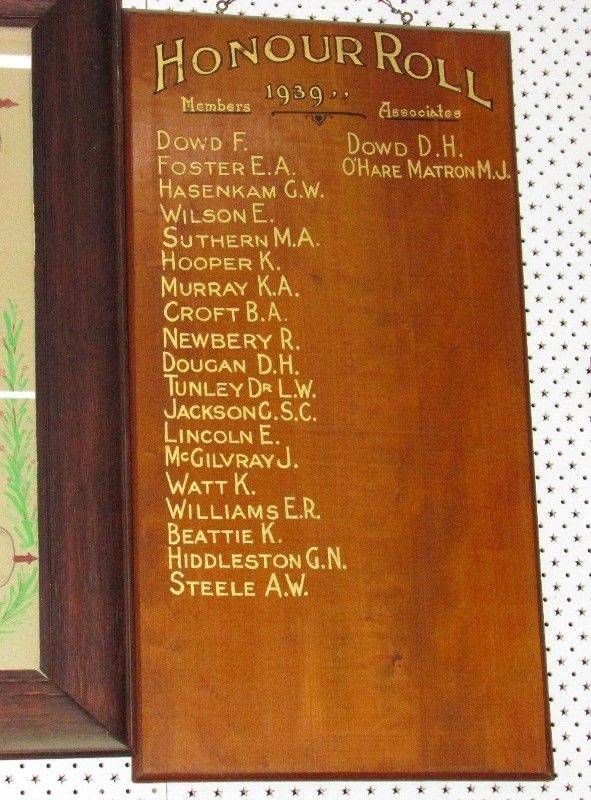 HONOUR ROLL
1939,,
Members
Associates
DOWD F.
FOSTER E.A.
HASENKAM G.W.
WILSON E.
SUTHERN M.A.
HOOPER K.
MURRAY K.A.
CROFT B.A.
NEWBERY R.
DOUGAN D.H.
TUNLEY DR L.W.
JACKSON G.S.C.
LINCOLN E.
McGILVRAY J.
WATT K.
WILLIAMS E.R.
BEATTIE K.
HIDDLESTON G.N.
STEELE A.W.
DOWD D.H.
O'HARE MATRON M.J.